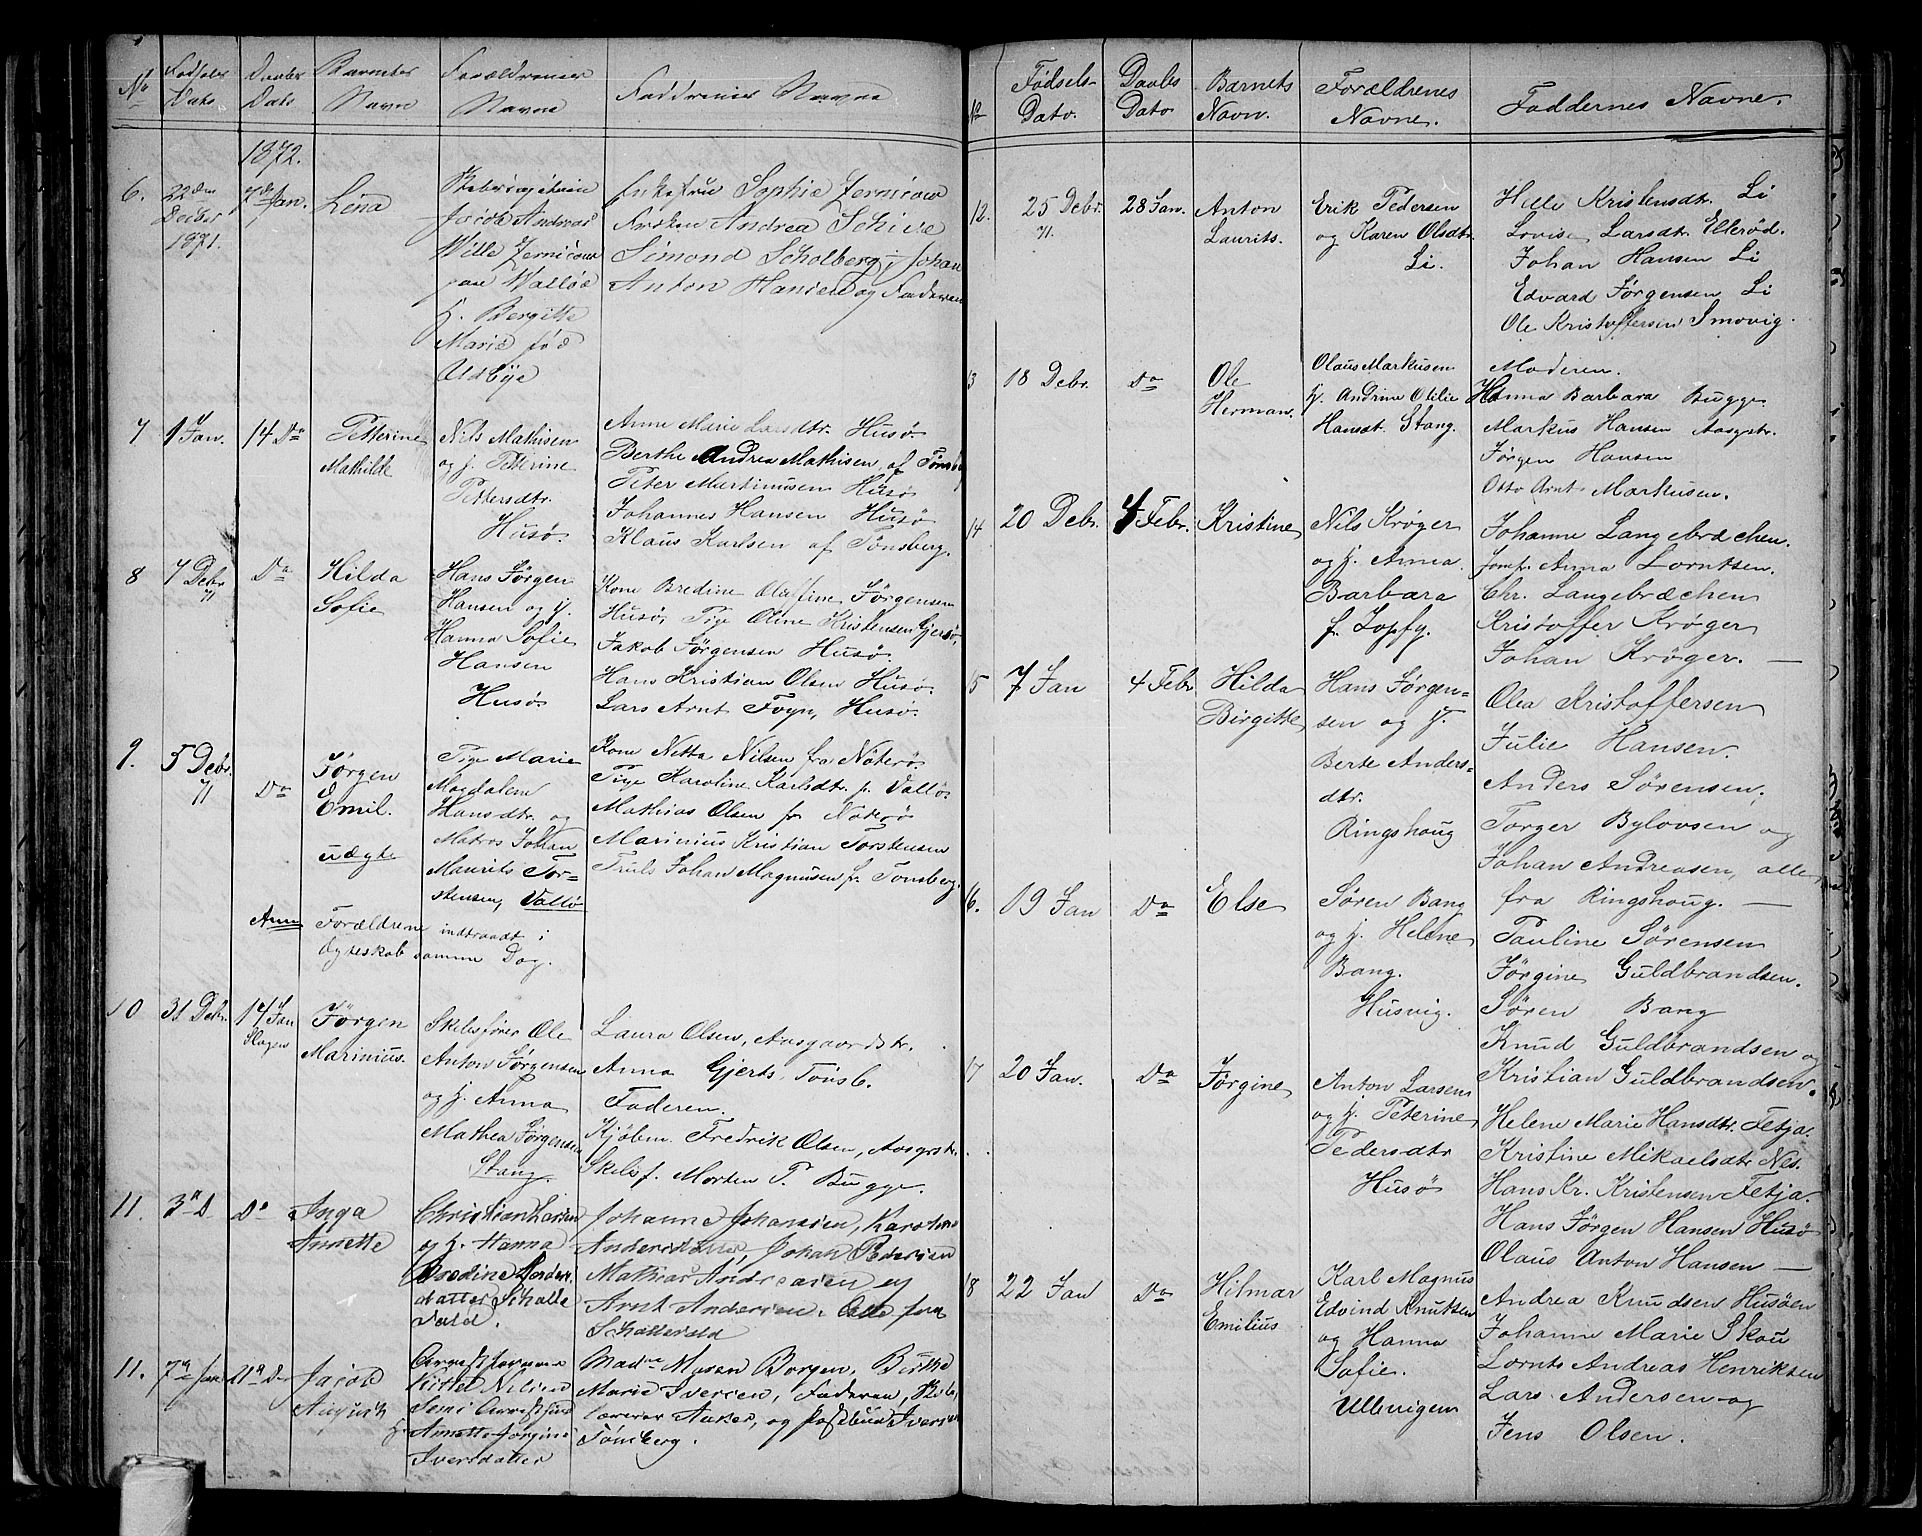 No Fødsels Daabs Barnets Forældrenes Faddernes Navne
Dato Dato Navn Navne
1872.
6. 22den 7de Jan. Lina
Decbr
1871.
Jacob Andreas
Wille Zernicow
paa Walløe
h. Bergitte
Marie fød
Aldbye
Enkefrue Sophie Zernicow
Frøken Andrea Schive
Simond Scholberg, Johan
Anton Hansen og Faderen
7 1 Jan. 14 Do Petterine
Mathilde
Nils Mathisen
og h. Petterine
Pettersdtr.
Husø.
Anne Marie Larsdtr. Husø.
Berthe Andrea Mathisen af Tønsbg
Peter Martinusen Husø
Johannes Hansen Husø
Klaus Karlsen af Tønsberg.
8 7 Debr 71 Do Hilda
Sofie
Hans Jørgen
Hansen og h.
Hanna Sofie
Hansen
Husø
Kone Bredine Olaffine Jørgensen
Husø, Pige Oline Kristensen Gjersø,
Jakob Jørgensen Husø.
Hans Kristian Olsen Husø.
Lars Arnt Foyn, Husø.
9. 5 Debr. 71 Do Jørgen
Emil.
uægte
Pige Marie
Magdalene
Hansdtr. og
Matros Johan
Maurits Tor-
stensen, Vallø
Kone Netta Nilsen fra Nøterø.
Pige Karoline Karlsdtr. fr. Vallø.
Mathias Olsen fr Nøterø
Marinius Kristian Torstensen
Truls Johan Magnusen fr. Tønsberg.
Anm Forældrene indtraadt i
Ægteskab samme Dag.
10 31 Debr. 14 Jan Jørgen
Slagen Marinius.
Skibsfører Ole
Anton Jørgensen
og h. Anna
Mathea Jørgensen
Stang.
Laura Olsen, Aasgaardstr.
Anna Gjerts. Tønsb.
Faderen.
Kjøbm. Fredrik Olsen, Aasgrstr.
Skibsf. Morten P. Bugge.
11. 3die D Do Inga
Annette
Christian Larsen
og h. Hanna
Bredine
datter
vold.
Johanne Johansen, Karoline
Andersdatter, Johan Pedersen
Mathias Andreasen og
Arnt Andersen. Alle fra
11. 7de Jan 21de Do Jacob
August
Kittel Nilsen
Annette Jørgine
Iversdatter
Madme Musen Borgen, Birthe
Marie Iversen, Faderen,
og Iversen
Tønsberg.
No Fødsels- Daabs Barnets Forældrenes Faddernes Navne.
Dato. Dato Navn. Navne.
12. 25 Debr. 71. 28 Jan. Anton
Laurits.
Erik Pedersen
og Karen Olsdtr.
Li.
Helle Kristensdt. Li
Lovise Larsdt. Ellerød.
Johan Hansen Li
Edvard Jørgensen Li
Ole Kristoffersen Smovig.
13 18 Debr. Do Ole
Herman.
Olaus Markusen
h. Andrine Otilie
Hansdt. Stang.
Moderen.
Hanna Barbara Bugge
Markus Hansen Aasgstr.
Jørgen Hansen
Otto Arnt Markusen.
14 20 Debr. 4 Febr. Kristine
Nils Krøger
og h. Anna
Barbara
f. Zopfy.
Johanne Langebræchen.
Jomfr. Anna Lorntsen.
Chr. Langebræchen
Kristoffer Krøger
Johan Krøger. —
15 7 Jan 4 Febr Hilda
Birgitte
Hans Jørgen-
sen og h.
Berte Anders-
dtr.
Ringshoug
Olea Kristoffersen
Julie Hansen.
Anders Sørensen,
Torger Bylovsen og
Johan Andreasen, alle
fra Ringshoug. —
16. 19 Jan Do Else
Søren Bang
og h. Helene
Bang.
Husvig.
Pauline Sørensen
Jørgine Guldbrandsen.
Søren Bang
Knud Guldbrandsen og
Kristian Guldbrandsen.
17 20 Jan. Do Jørgine
Anton Larsen
og h. Peterine
Pedersdtr
Husø
Helene Marie Hansdtr. Fetja.
Kristine Mikaelsdtr Nes.
Hans Kr. Kristensen Fetja.
Hans Jørgen Hansen Husø
Olaus Anton Hansen —
18 22 Jan Do Hilmar
Emilius
Karl Magnus
Edvind Knutsen
og Hanna
Sofie.
Ulbuigen
Andrea Knudsen Husøen
Johanne Marie Skou
Lornts Andreas Henriksen
Lars Andersen og
Jens Olsen.